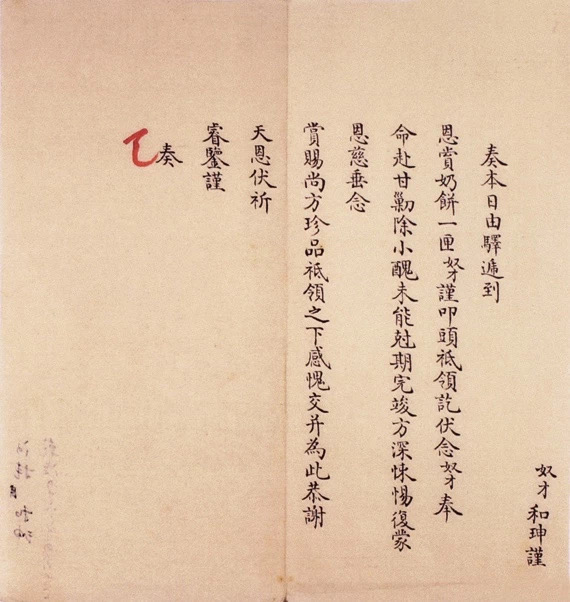 奴才和珅謹
奏本日由驛遞到
恩賞奶餅一匣奴才謹叩頭祗領訖伏念奴才奉
命赴甘勦除小醜未能尅期完竣方深悚惕復蒙
恩慈垂念
賞賜尚方珍品祗領之下感愧交并為此恭謝
天恩伏祈
睿鑒謹
奏